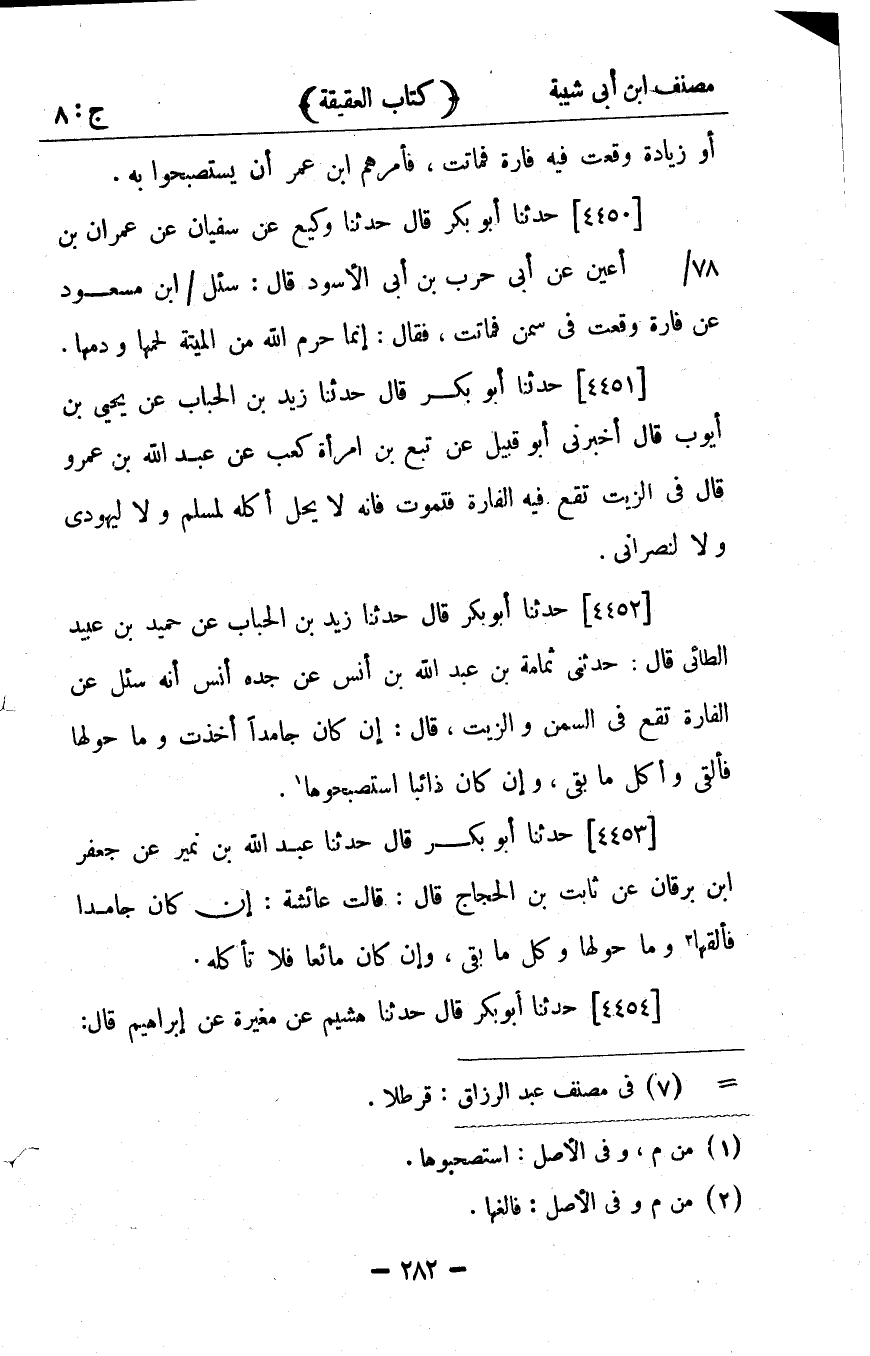 مصنف ابن أبى شيبة ﴿ كتاب العقيقة ﴾ ج : ٨
أو زيادة وقعت فيه فارة فماتت ، فأمرهم ابن عمر أن يستصبحوا به .
[٤٤٥٠] حدثنا أبو بكر قال حدثنا وكيع عن سفيان عن عمران بن
٧٨/ أعين عن أبى حرب بن أبى الأسود قال : سئل / ابن مسعود
عن فارة وقعت فى سمن فماتت ، فقال : إنما حرم الله من الميتة لحمها و دمها .
[٤٤٥١] حدثنا أبو بكر قال حدثنا زيد بن الحباب عن يحيى بن
أيوب قال أخبرنى أبو قبيل عن تبع بن امرأة كعب عن عبد الله بن عمرو
قال فى الزيت تقع فيه الفارة فتموت فانه لا يحل أكله لمسلم و لا ليهودى
و لا لنصرانى .
[٤٤٥٢] حدثنا أبوبكر قال حدثنا زيد بن الحباب عن حميد بن عبيد
الطائى قال : حدثنى ثمامة بن عبد الله بن أنس عن جده أنس أنه سئل عن
الفارة تقع فى السمن و الزيت ، قال : إن كان جامداً أخذت و ما حولها
فألقى و أكل ما بقى ، و إن كان ذائبا استصبحوها١ .
[٤٤٥٣] حدثنا أبو بكر قال حدثنا عبد الله بن نمير عن جعفر
ابن برقان عن ثابت بن الحجاج قال : قالت عائشة : إن كان جامدا
فألقها٢ و ما حولها و كل ما بقى ، وإن كان مائعا فلا تأكله .
[٤٤٥٤] حدثنا أبوبكر قال حدثنا هشيم عن مغيرة عن إبراهيم قال:
= (٧) فى مصنف عبد الرزاق : قرطلا .
(١) من م ، و فى الأصل : استصحبوها .
(٢) من م و فى الأصل : فالغها .
— ٢٨٢ —